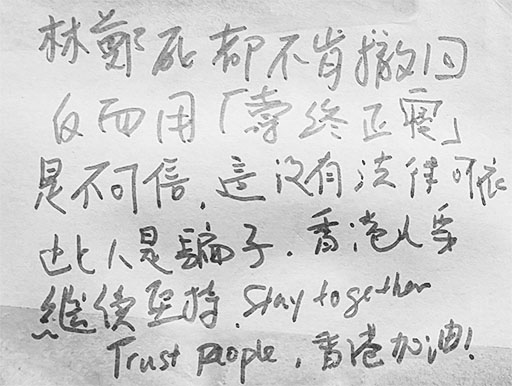 林鄭死都不肯撤回
反而用「壽終正寢」
是不可信,這沒有法律可依
此人是騙子,香港人要
繼續堅持, Stay together
Trust people, 香港加油!